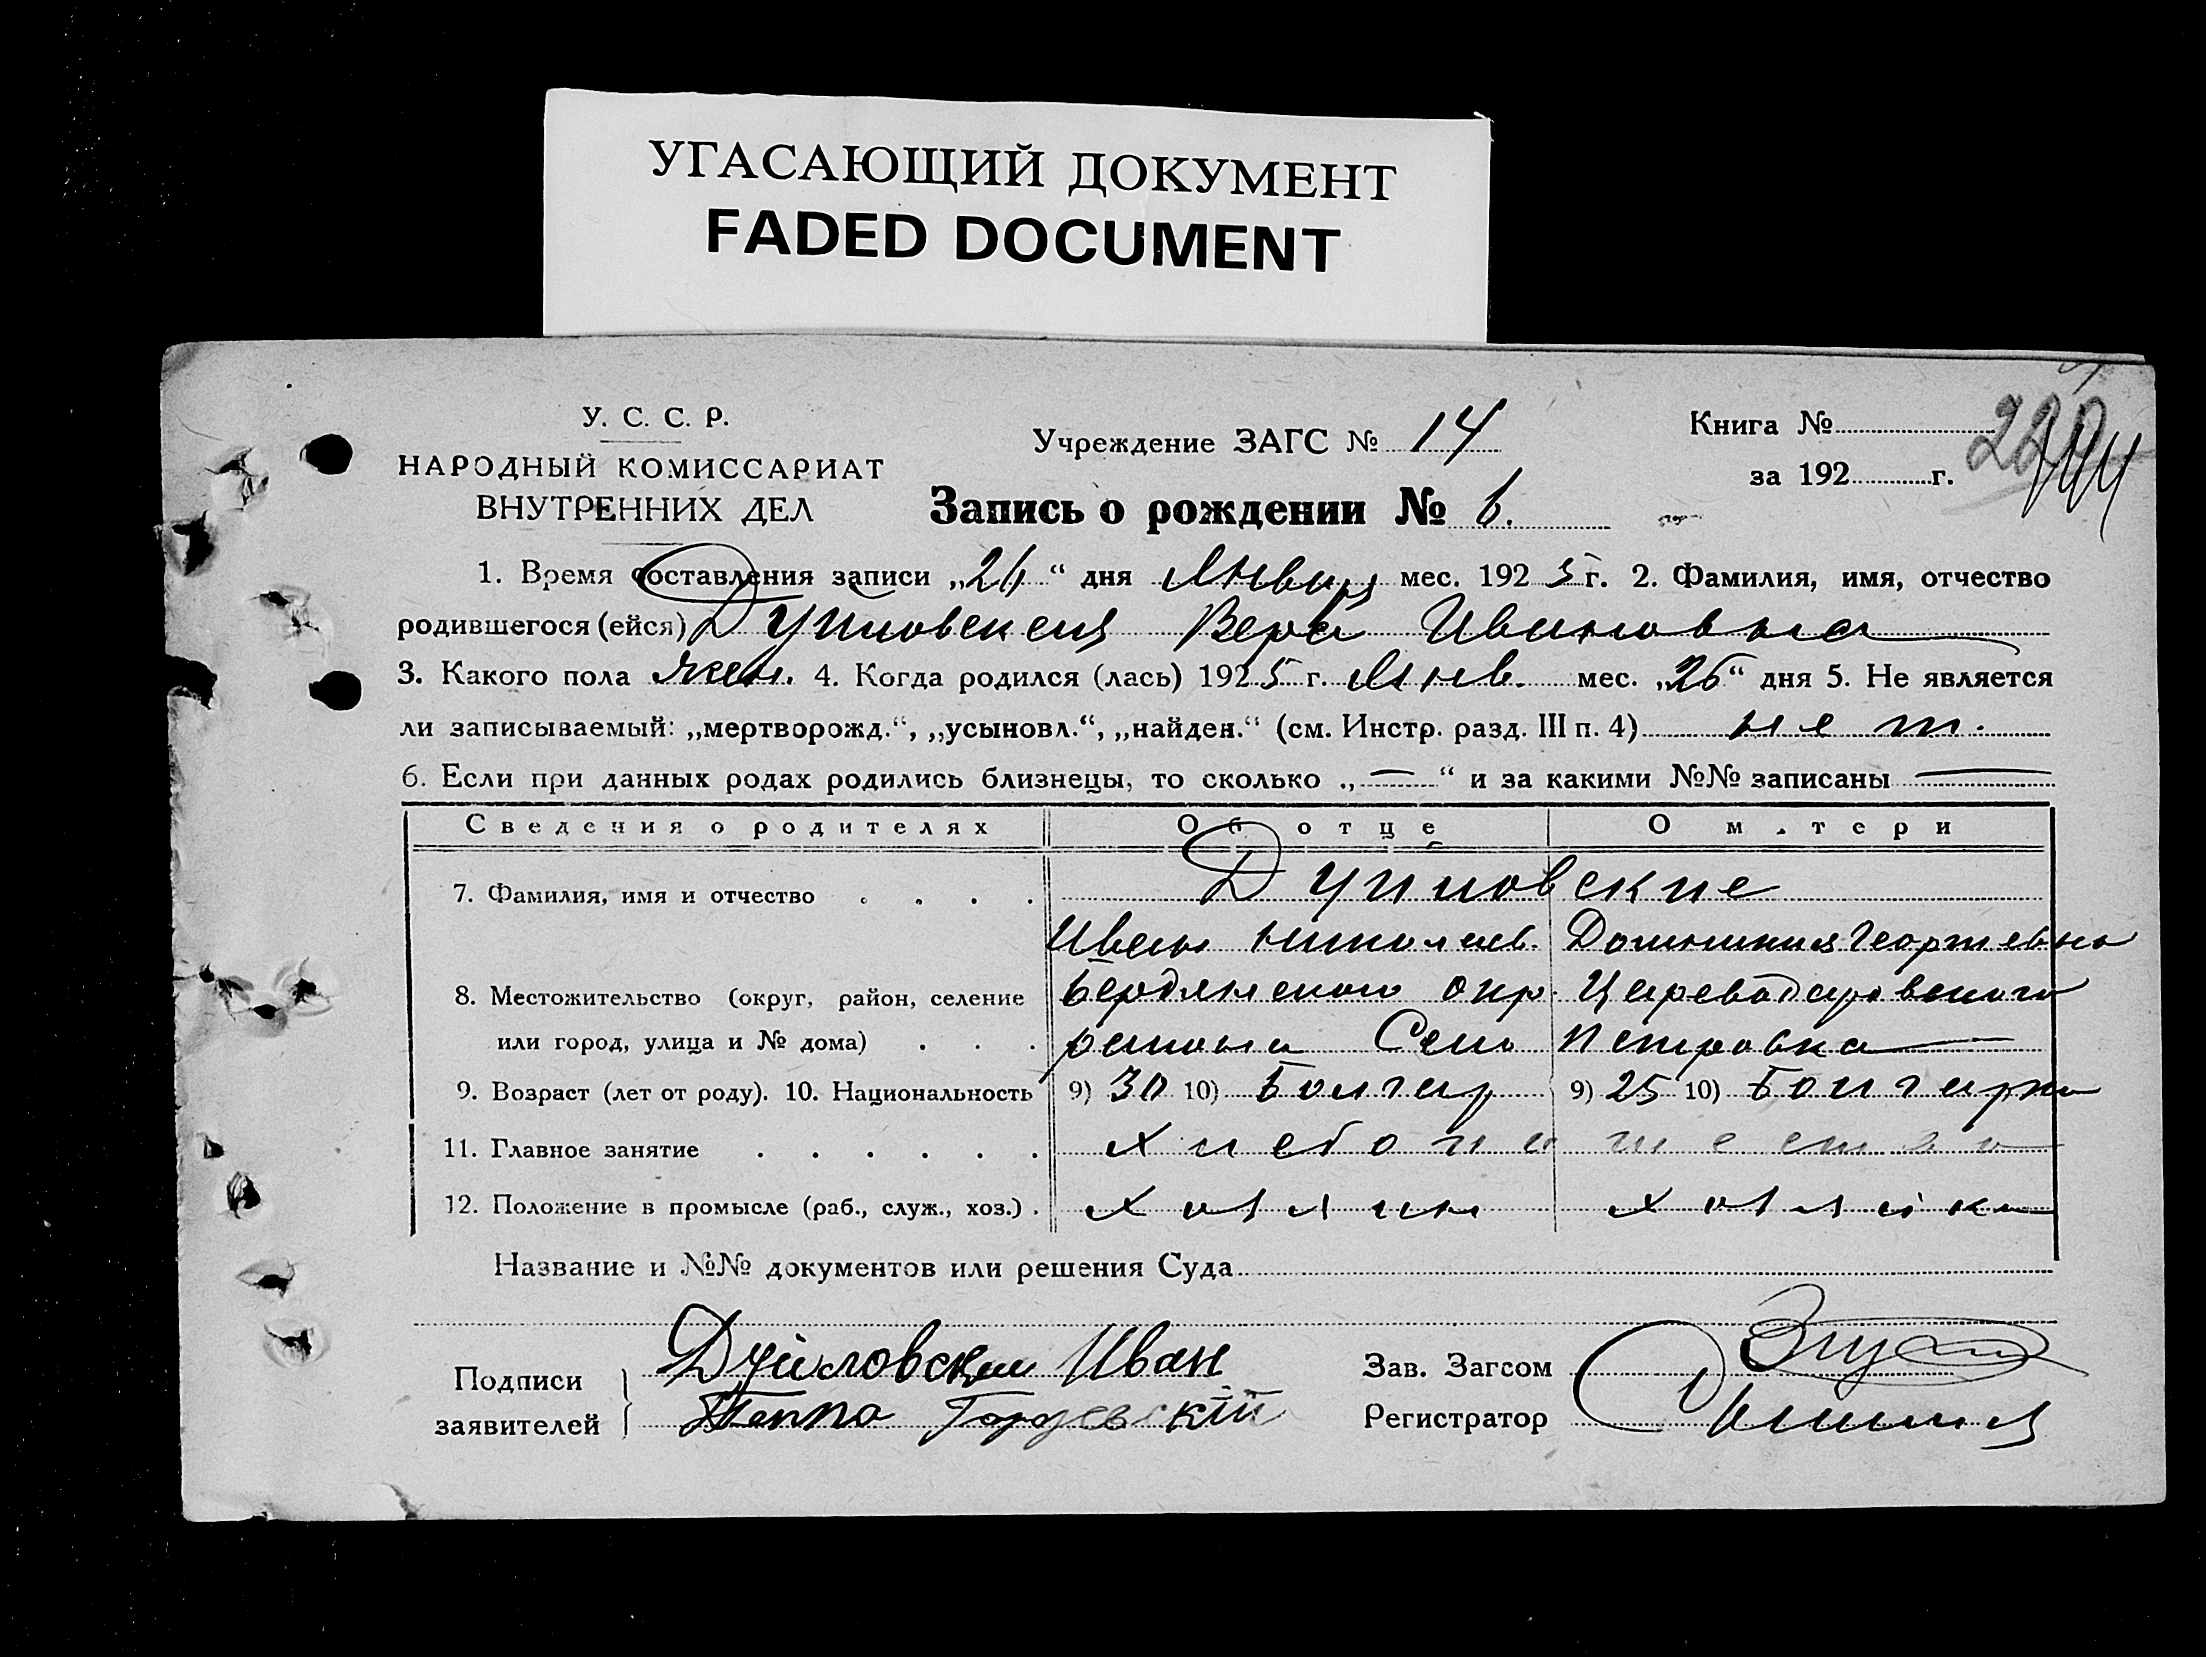 УГАСАЮЩИЙ ДОКУМЕНТ
FADED DOCUMENT
У. С. С. Р.
НАРОДНЫЙ КОМИССАРИАТ
ВНУТРЕННИХ ДЕЛ
Учреждение ЗАГС № 14
Книга №
за 192 г.
Запись о рождении № 6.
1. Время составления записи „26“ дня Января мес. 1925 г. 2. Фамилия, имя, отчество
родившегося (ейся) Вера Ивановна
3. Какого пола жен. 4. Когда родился (лась) 1925 г. Янв. мес. „26“ дня 5. Не является
ли записываемый: „мертворожд.“, „усыновл.“, „найден.“ (см. Инстр. разд. III п. 4) нет.
6. Если при данных родах родились близнецы, то сколько „—“ и за какими №№ записаны —
Сведения о родителях Об отце О матери
7. Фамилия, имя и отчество . . . .
Иван Николаев. Георгиевна
8. Местожительство (округ, район, селение Бердянского окр. Царевадаровского
или город, улица и № дома) . . . района Село Петровка
9. Возраст (лет от роду). 10. Национальность 9) 30 10) Болгар 9) 25 10) Болгарка
11. Главное занятие . . . . . . Хлебопашество
12. Положение в промысле (раб., служ., хоз.) . хозяин хозяйка
Название и №№ документов или решения Суда
Подписи
заявителей
Иван
Зав. Загсом
Регистратор